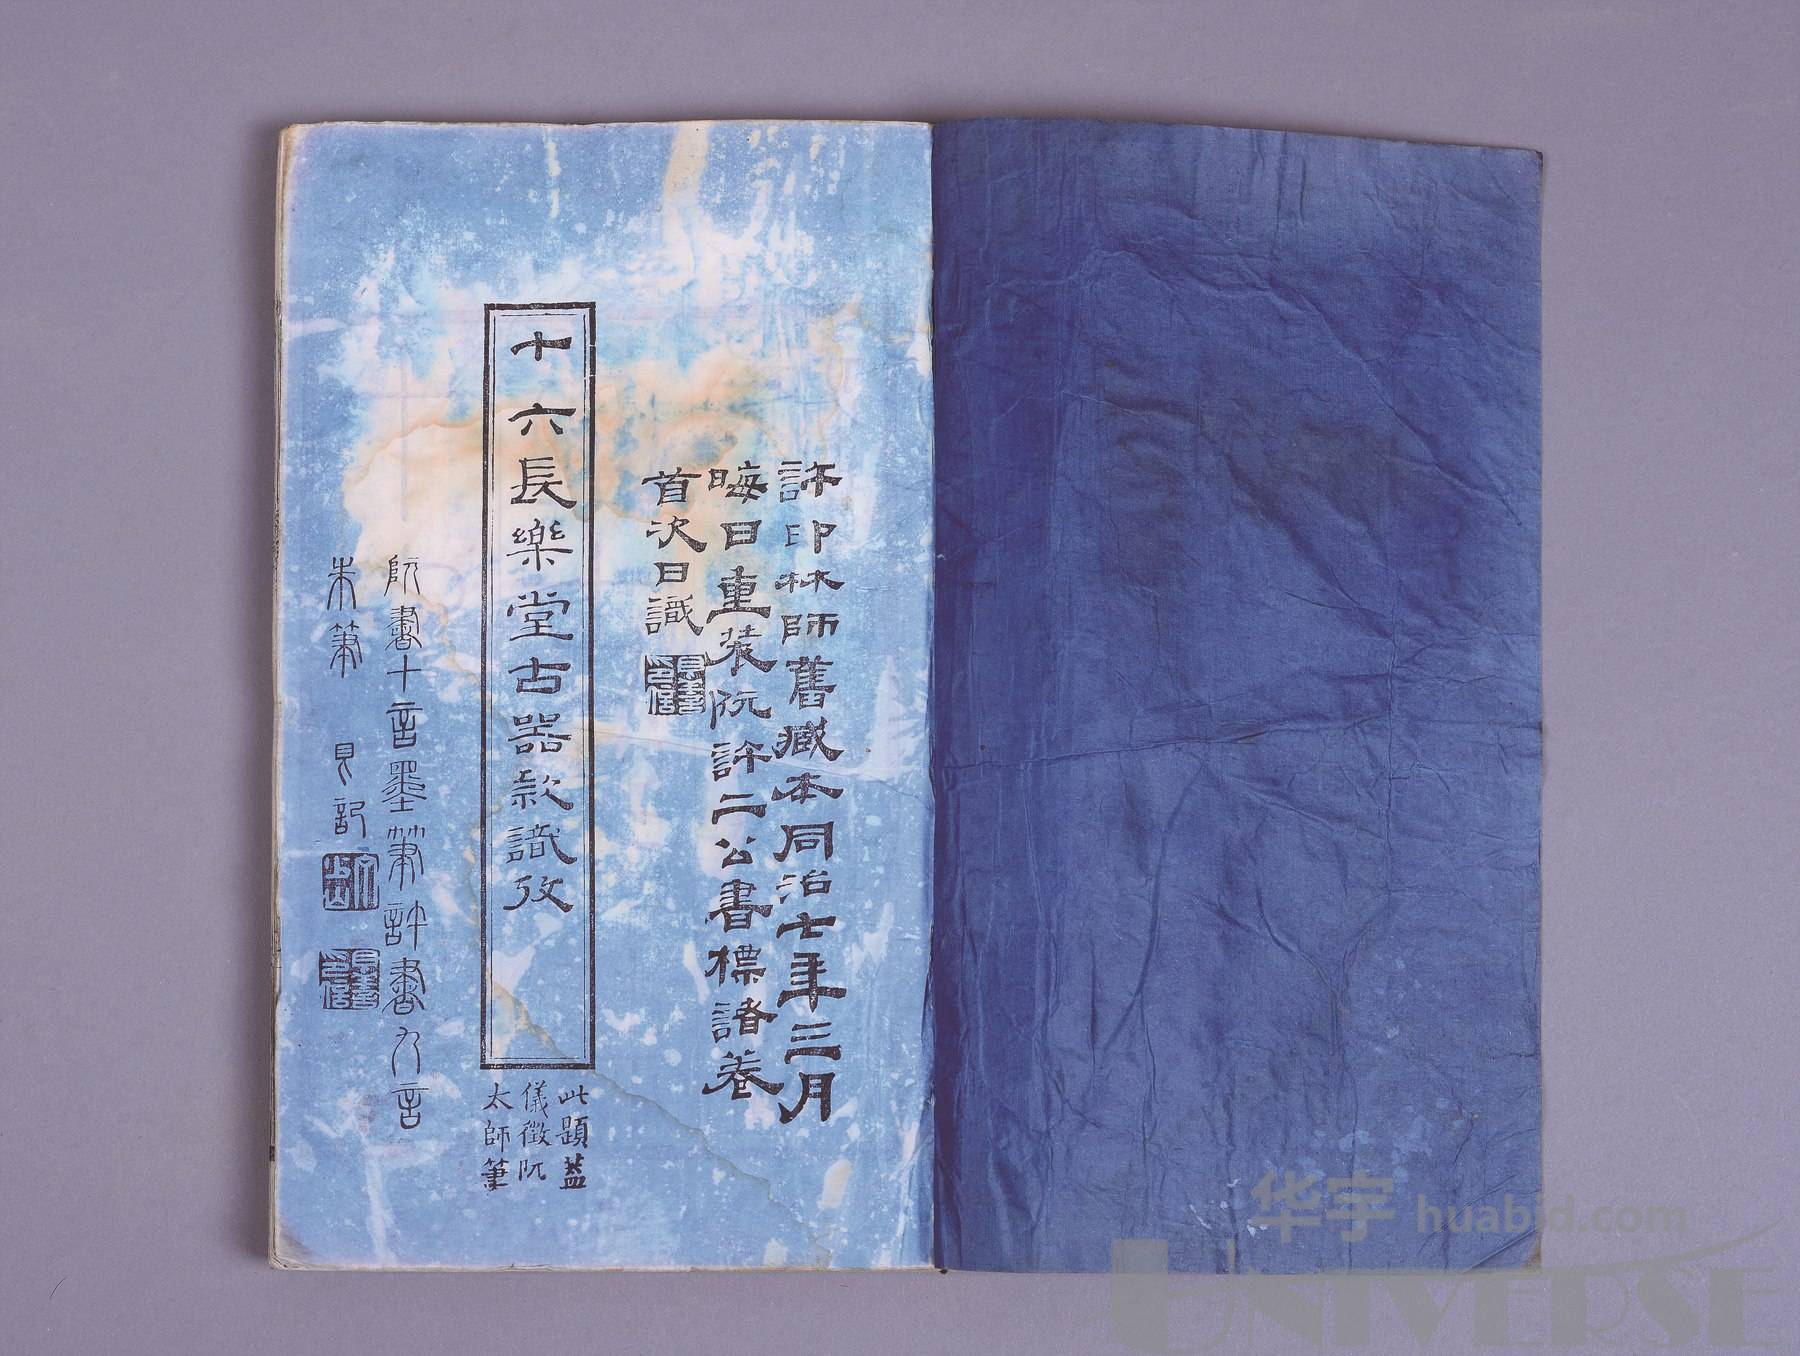 許印林師舊臧本同治七年三月
晦日重裝阮許二公書標諸卷
首次日識
十六長樂堂古器款識攷
此題蓋
儀徵阮
太師筆
阮書十言墨筆許書九言
朱筆 㠯記
华宇 huabid.com
UNIVERSE